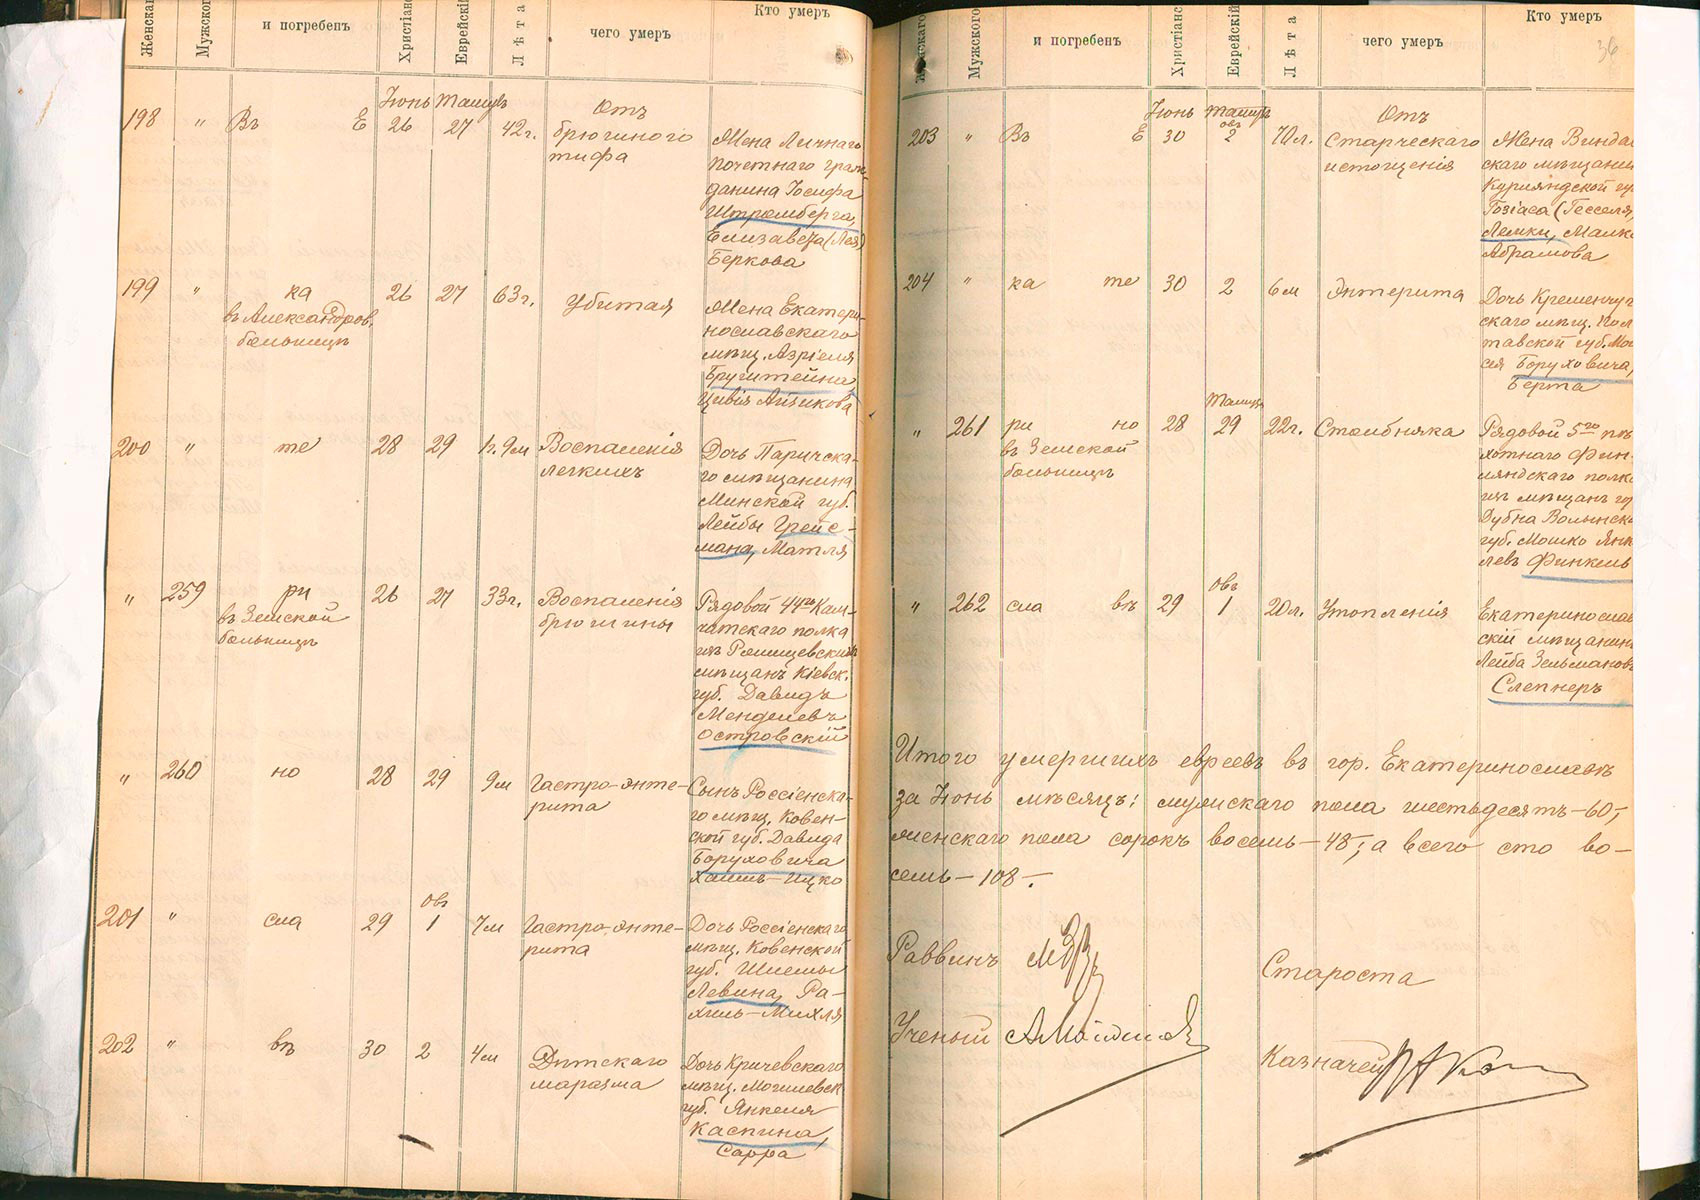 Женскаго
Мужского
и погребенъ
Христіанс
Еврейскій
Лѣта
чего умеръ
Кто умеръ
Іюнь Тамузъ
198 " Въ Е 26 27 42г. Отъ
брюшного
тифа
Жена Личнаго
почетнаго граж-
данина Іосифа
Штромберга,
Елизавета (Лея)
Беркова
199 " ка 26 27 63г. Убитая
въ Александров.
больницѣ
Жена Екатери-
нославскаго
мѣщ. Азріеля
Бруштейна
Цивія Айзикова
200 " те 28 29 1г. 9м Воспаленія
легкихъ
Дочь Паричска-
го мѣщанина
Минской губ.
Лейбы Грейс-
мана, Матля
" 259 ри 26 27 33г. Воспаленія
въ Земской
больницѣ
брюшины
Рядовой 44го Кам-
чатскаго полка
изъ
мѣщанъ Кіевск.
губ. Давидъ
Менделевъ
Островскій
" 260 но 28 29 9м Гастро-энте-
рита
Сынъ Россіенска-
го мѣщ. Ковен-
ской губ. Давида
Боруховича
Хаимъ-Ицко
овъ
201 " сла 29 1 7м Гастро-энте-
рита
Дочь Россіенскаго
мѣщ. Ковенской
губ. Шлемы
Левина, Ра-
хиль-Михля
202 " вѣ 30 2 4м Дѣтскаго
маразма
Дочь Кричевскаго
мѣщ. Могилевск
губ. Янкеля
Каспина,
Сарра
Женскаго
Мужского
и погребенъ
Христіанс
Еврейскій
Лѣта
чего умеръ
Кто умеръ
36
Іюнь Тамузъ
овъ
203 " Въ Е 30 2 70л. Отъ
Старческаго
истощенія
Жена Виндав
скаго мѣщанин
Курляндской гу
(Гесселя)
Лемки, Малка
Абрамова
204 " ка те 30 2 6м Энтерита
Дочь Кременчуг
скаго мѣщ. Пол
тавской губ. Мов
сея Боруховича,
Берта
Тамузъ
" 261 ри но 28 29 22г. Столбняка
въ Земской
больницѣ
Рядовой 5го пѣ
хотнаго Фин-
ляндскаго полка
изъ мѣщанъ гор
Дубна Волынск
губ. Мошко Янк
левъ Финкель
овъ
" 262 сла вѣ 29 1 20л. Утопленія
Екатеринослав
скій мѣщанинъ
Лейба Зельмановъ
Слепнеръ
Итого умершихъ евреевъ въ гор. Екатеринославѣ
за Іюнь мѣсяцъ: мужскаго пола шестьдесятъ-60-,
женскаго пола сорокъ восемь-48-, а всего сто во-
семь-108-.
Раввинъ
Староста
Ученый
Казначей